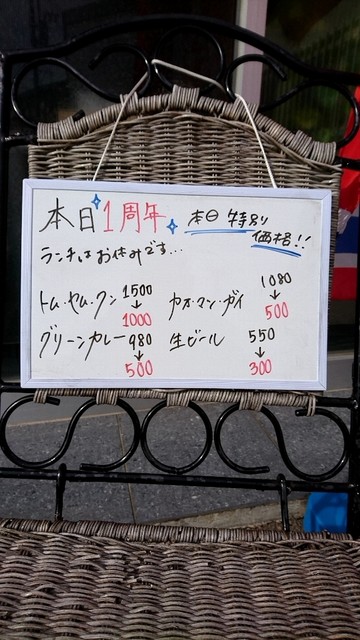 本日1周年
本日特別
価格!!
ランチはお休みです…
トム・ヤム・クン 1500→1000
カオ・マン・ガイ 1080→500
グリーンカレー 980→500
生ビール 550→300